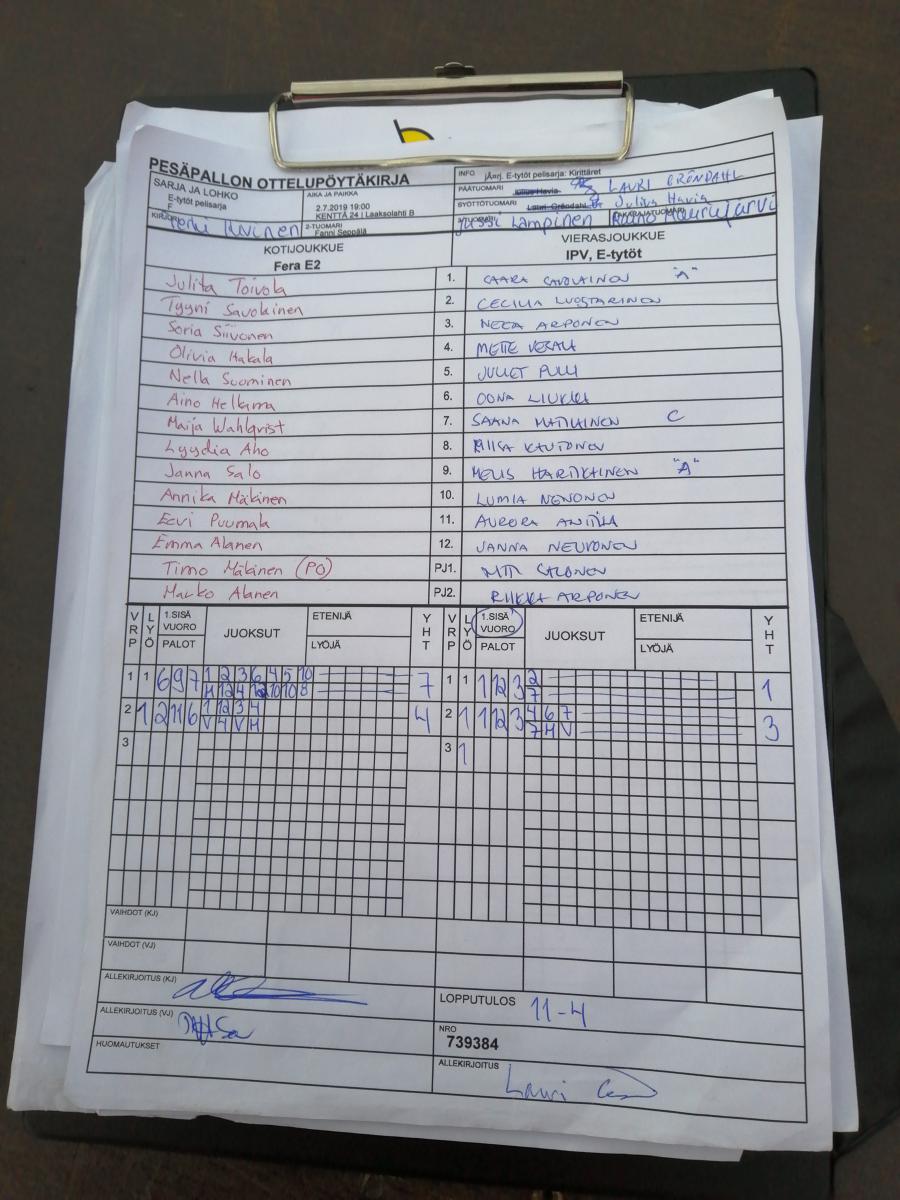 PESÄPALLON OTTELUPÖYTÄKIRJA
SARJA JA LOHKO
E-tytöt pelisarja
F
AIKA JA PAIKKA
2.7.2019 19:00
KENTTÄ 24 | Laaksolahti B
INFO jÄarj. E-tytöt pelisarja: Kirittäret
PÄÄTUOMARI Julius Havia LAURI GRÖNDAHL
SYÖTTÖTUOMARI Lauri Gröndahl Julius Havia
KIRJURI
2-TUOMARI
Fanni Seppälä
Jussi Lampinen
KOTIJOUKKUE
Fera E2
VIERASJOUKKUE
IPV, E-tytöt
Julita Toivola 1. SAARA SAVOLAINEN "A"
Tyyni Savolainen 2. CECILIA LUOSTARINEN
Soria Siivonen 3. NEEA ARPONEN
Olivia Hakala 4. METTE VESALA
Nella Suominen 5. JULIET PULLI
Aino Helkama 6. OONA LIUKKA
Maija Wahlqvist 7. SAANA MATIKAINEN C
Lyydia Aho 8. KAUTONEN
Janna Salo 9. HARTIKAINEN "A"
Annika Mäkinen 10. LUMIA NENONEN
Eevi Puumala 11. AURORA ANTTILA
Emma Alanen 12. JANNA NEUVONEN
Timo Mäkinen (PO) PJ1. SALONEN
Marko Alanen PJ2. RIIKKA ARPONEN
VRP LYÖ 1.SISÄ VUORO PALOT JUOKSUT ETENIJÄ LYÖJÄ YHT VRP LYÖ 1.SISÄ VUORO PALOT JUOKSUT ETENIJÄ LYÖJÄ YHT
1 1 6 9 7 1 2 3 6 4 5 10 7 1 1 1 12 3 2 1
H 12 4 12 10 10 8 7
2 1 2 11 6 1 12 3 4 4 2 1 1 12 3 4 6 7 3
V 4 V H 7 H V
3 3 1
VAIHDOT (KJ)
VAIHDOT (VJ)
ALLEKIRJOITUS (KJ)
ALLEKIRJOITUS (VJ)
HUOMAUTUKSET
LOPPUTULOS 11-4
NRO
739384
ALLEKIRJOITUS
Lauri